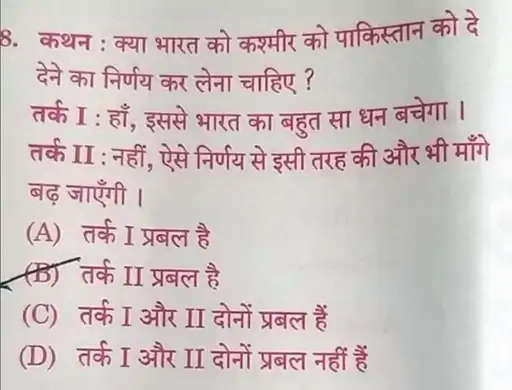 8. कथन : क्या भारत को कश्मीर को पाकिस्तान को दे
देने का निर्णय कर लेना चाहिए ?
तर्क I : हाँ, इससे भारत का बहुत सा धन बचेगा ।
तर्क II : नहीं, ऐसे निर्णय से इसी तरह की और भी माँगे
बढ़ जाएँगी ।
(A) तर्क I प्रबल है
(B) तर्क II प्रबल है
(C) तर्क I और II दोनों प्रबल हैं
(D) तर्क I और II दोनों प्रबल नहीं हैं